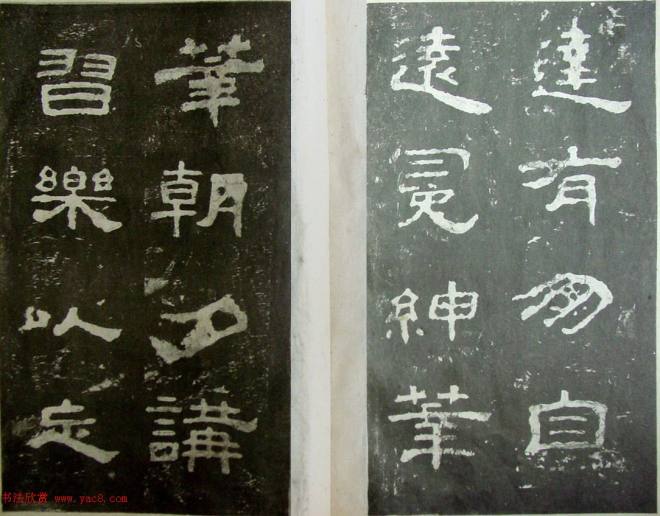 達有朋自
遠冕紳莘
莘朝夕講
習樂以忘
书法欣赏 www.yac8.com